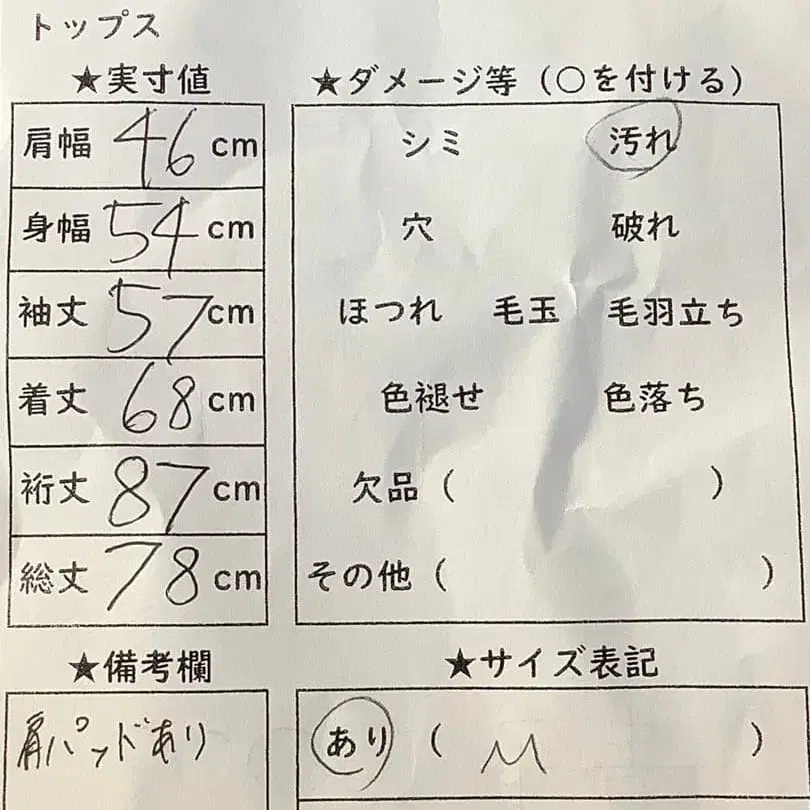 トップス
★実寸値
肩幅 46 cm
身幅 54 cm
袖丈 57 cm
着丈 68 cm
裄丈 87 cm
総丈 78 cm
★ダメージ等（○を付ける）
シミ 汚れ
穴 破れ
ほつれ 毛玉 毛羽立ち
色褪せ 色落ち
欠品（ ）
その他（ ）
★備考欄
肩パッドあり
★サイズ表記
あり（ M ）